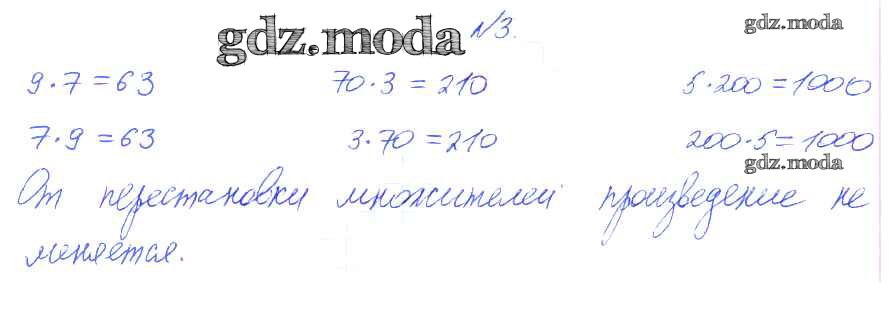 gdz.moda №3. gdz.moda
9·7=63 70·3=210 5·200=1000
7·9=63 3·70=210 200·5=1000
gdz.moda
От перестановки множителей произведение не
меняется.